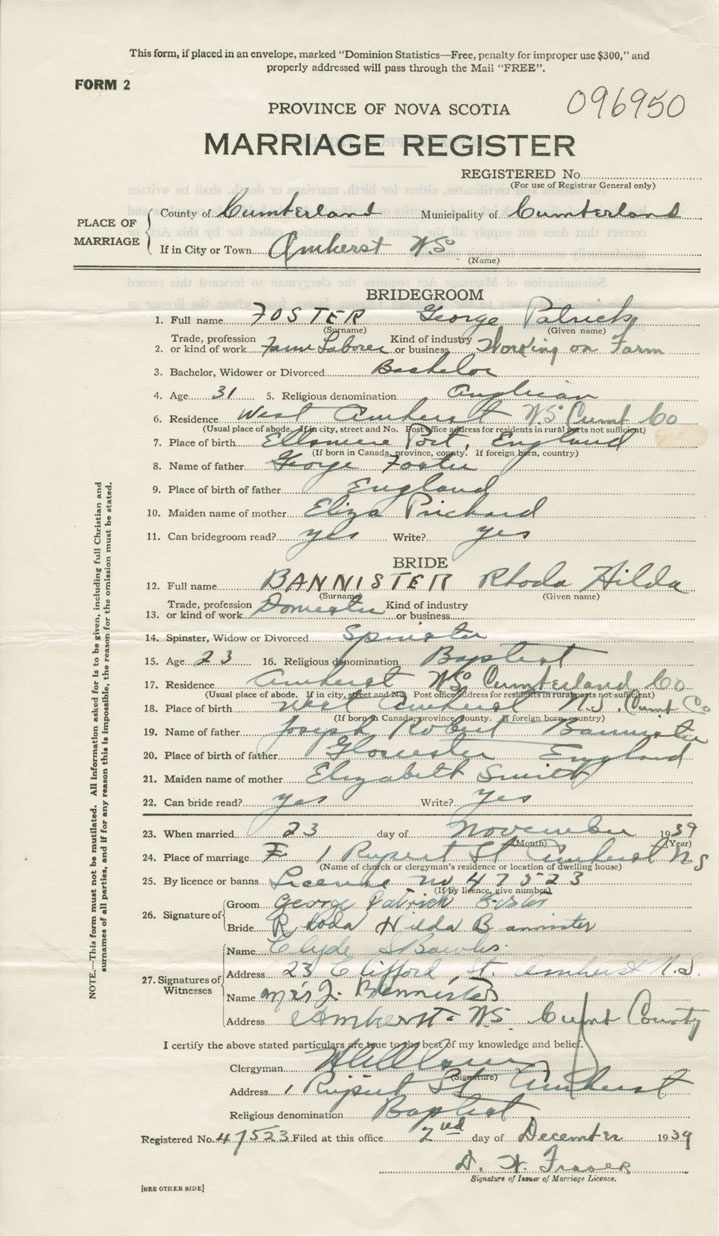 This form, if placed in an envelope, marked "Dominion Statistics—Free, penalty for improper use $300," and
properly addressed will pass through the Mail "FREE".
FORM 2
PROVINCE OF NOVA SCOTIA
096950
MARRIAGE REGISTER
REGISTERED No.
(For use of Registrar General only)
PLACE OF MARRIAGE
County of Cumberland Municipality of Cumberland
If in City or Town Amherst NS
(Name)
BRIDEGROOM
1. Full name FOSTER George Patrick
(Surname) (Given name)
2. Trade, profession or kind of work Farm Laborer Kind of industry or business Working on Farm
3. Bachelor, Widower or Divorced Bachelor
4. Age 31 5. Religious denomination Anglican
6. Residence West Amherst NS Cumt Co
(Usual place of abode. If in city, street and No. Post office address for residents in rural parts not sufficient)
7. Place of birth Ellsmere Port, England
(If born in Canada, province, county. If foreign born, country)
8. Name of father George Foster
9. Place of birth of father England
10. Maiden name of mother Eliza Prichard
11. Can bridegroom read? yes Write? yes
BRIDE
12. Full name BANNISTER Rhoda Hilda
(Surname) (Given name)
13. Trade, profession or kind of work Domestic Kind of industry or business
14. Spinster, Widow or Divorced Spinster
15. Age 23 16. Religious denomination Baptist
17. Residence Amherst NS Cumberland Co
(Usual place of abode. If in city, street and No. Post office address for residents in rural parts not sufficient)
18. Place of birth West Amherst N.S. Cumt Co
(If born in Canada, province, county. If foreign born, country)
19. Name of father Joseph Robert Bannister
20. Place of birth of father Gloucester England
21. Maiden name of mother Elizabeth Smith
22. Can bride read? yes Write? yes
23. When married 23 day of November 1939
(Month) (Year)
24. Place of marriage 1 Rupert St Amherst N S
(Name of church or clergyman's residence or location of dwelling house)
25. By licence or banns License no 47523
(If by licence, give number)
26. Signature of
Groom George Patrick Foster
Bride Rhoda Hilda Bannister
27. Signatures of Witnesses
Name Clyde S Bowles
Address 23 Clifford st. Amherst N.S.
Name Mrs J. Bannister
Address Amherst NS. Cumt County
I certify the above stated particulars are true to the best of my knowledge and belief.
Clergyman
(Signature)
Address 1 Rupert St Amherst
Religious denomination Baptist
Registered No. 47523 Filed at this office 2nd day of December 1939
D. W. Fraser
Signature of Issuer of Marriage Licence.
[SEE OTHER SIDE]
NOTE.—This form must not be mutilated. All information asked for is to be given, including full Christian and
surnames of all parties, and if for any reason this is impossible, the reason for the omission must be stated.